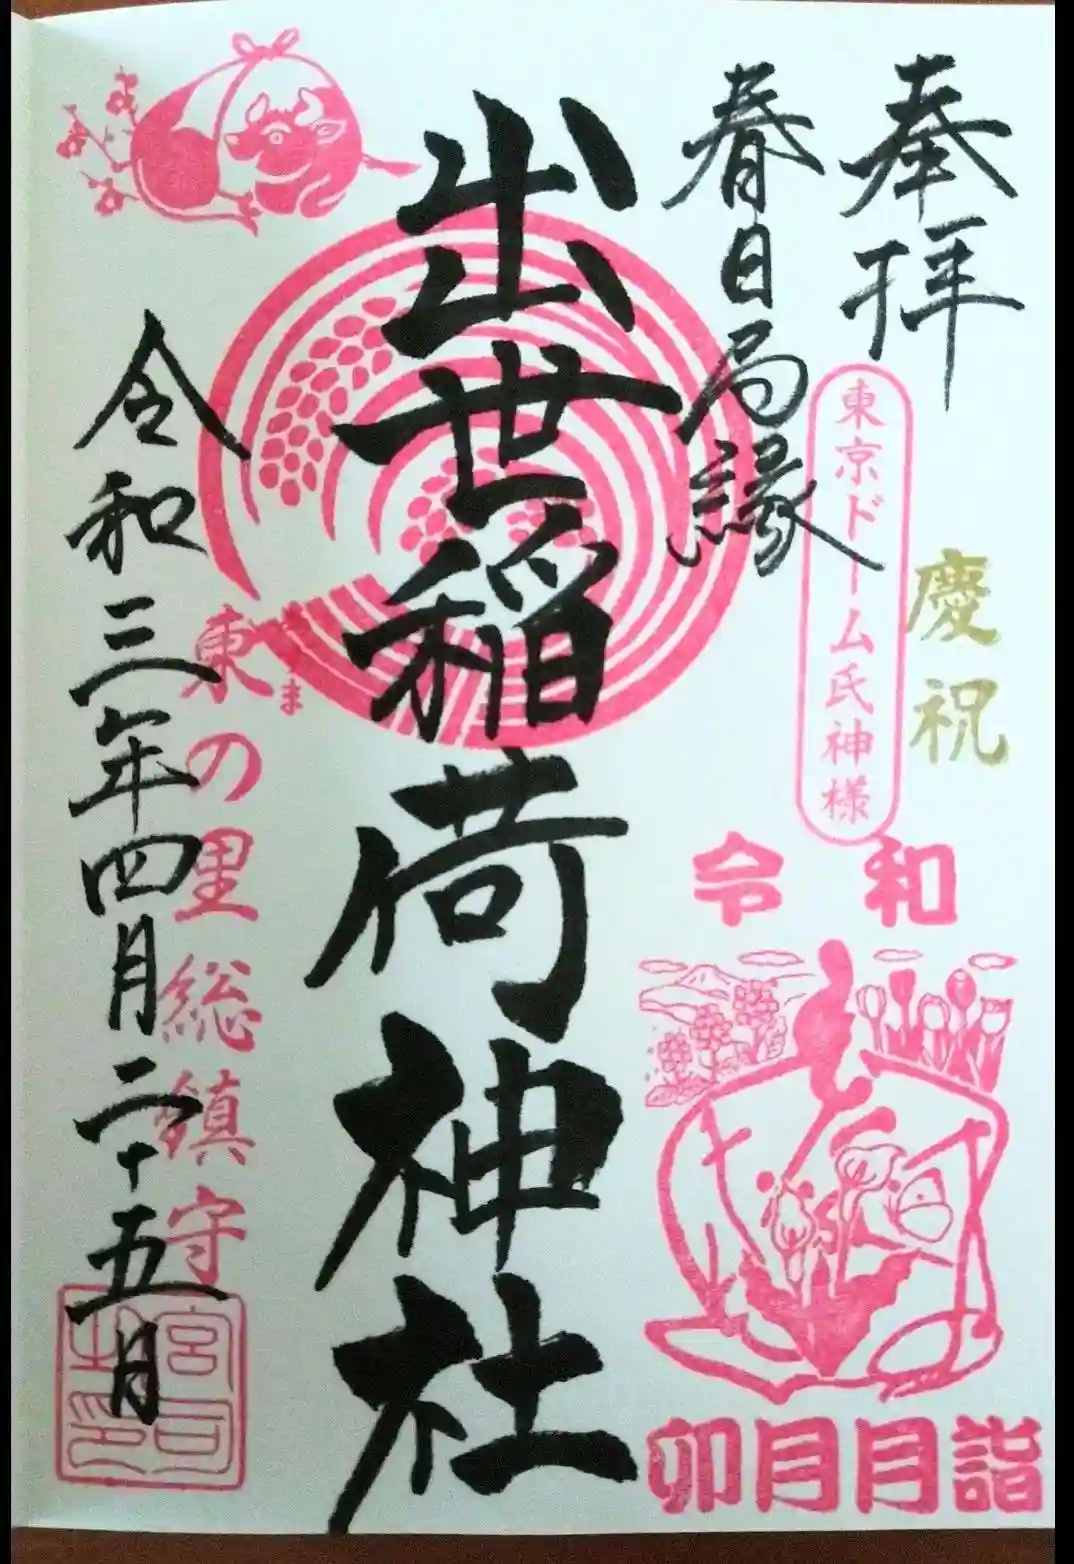 奉拝
慶祝
東京ドーム氏神様
春日局縁
令和
卯月月詣
出世稲荷神社
東の里総鎮守
令和三年四月二十五日
宮司之印